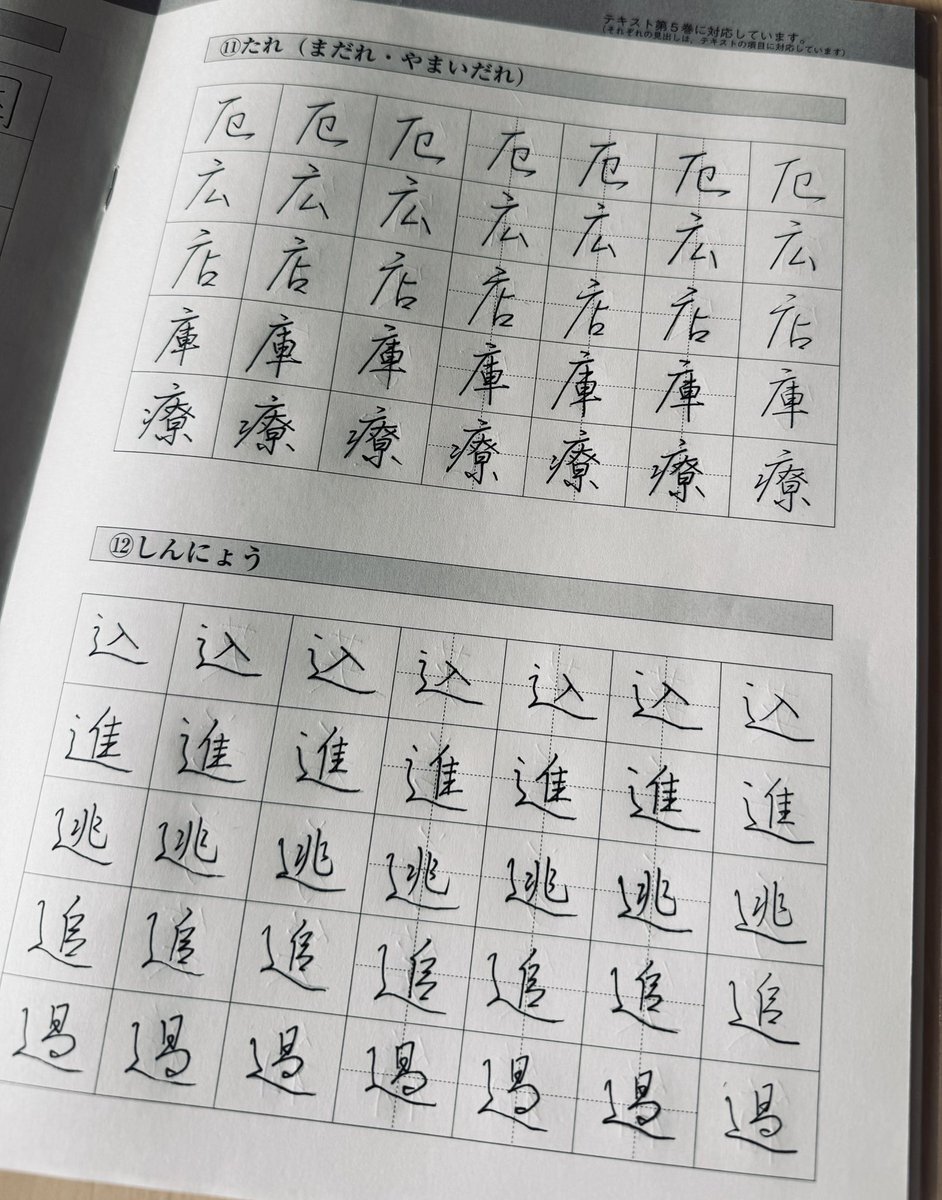 テキスト第5巻に対応しています。
(それぞれの見出しは、テキストの項目に対応しています)
⑪たれ(まだれ・やまいだれ)
厄 厄 厄 厄 厄 厄 厄
広 広 広 広 広 広 広
店 店 店 店 店 店 店
庫 庫 庫 庫 庫 庫 庫
療 療 療 療 療 療 療
⑫しんにょう
込 込 込 込 込 込 込
進 進 進 進 進 進 進
逃 逃 逃 逃 逃 逃 逃
追 追 追 追 追 追 追
過 過 過 過 過 過 過